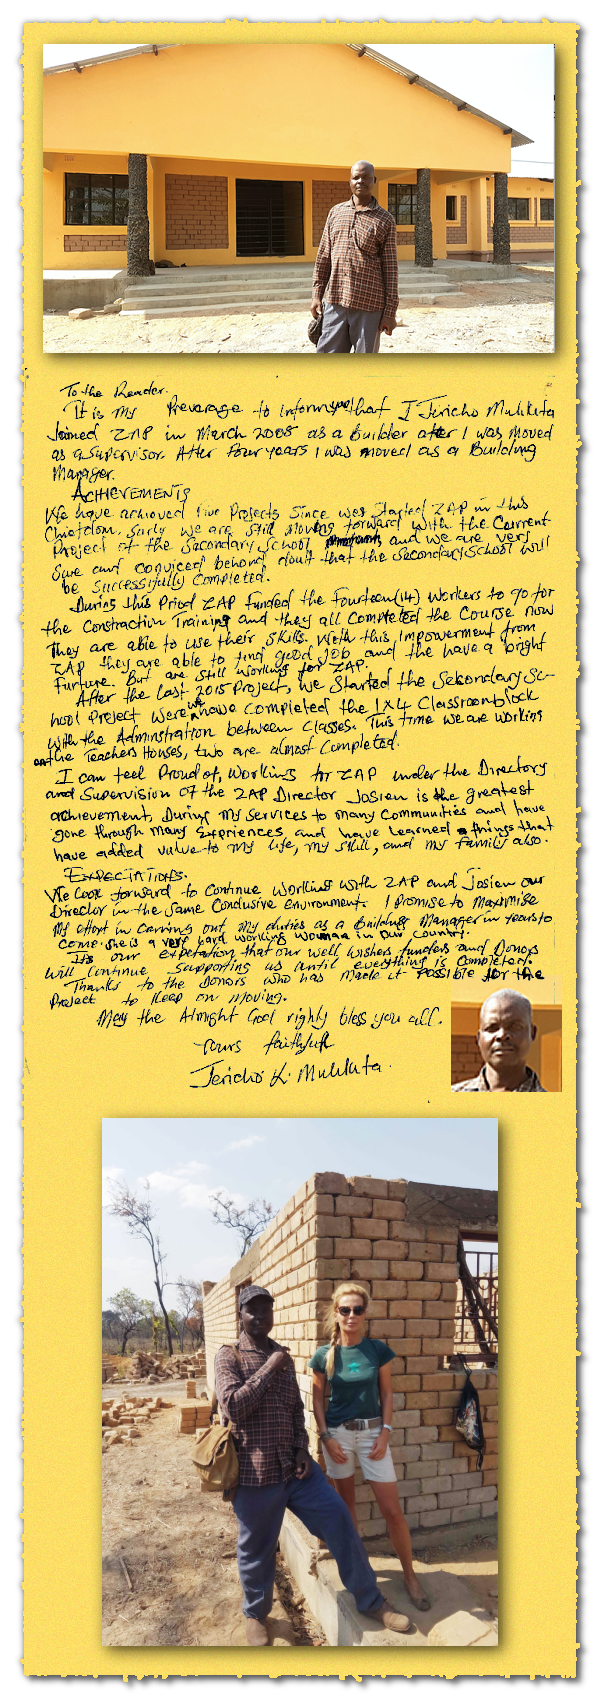 To the Reader.
It is my Preverage to inform you that I Jericho Mulikuta
Joined ZAP in March 2008 as a Builder after I was moved
as a supervisor. After four years I was moved as a Building
Manager.
ACHIEVEMENTS
We have achieved Five Projects since was started ZAP in this
Chiefdom. Surly we are still moving forward with the Current
Project of the Secondary School and we are very
Sure and convinced behond dout that the Secondary School will
be Successfully Completed.
During this Priod ZAP funded the fourteen (14) workers to go for
the Constraction Training and they all Completed the Course now
They are able to use their skills. With this Impowerment from
ZAP they are able to find good job and the have a bright
Furture. But are still working for ZAP.
After the last 2015 Project, we started the Sekondary Sc-
hool Project were we have completed the 1X4 Classroom block
with the Adminstration between Classes. This time we are working
on the Teachers Houses, two are almost Completed.
I can feel Proud of, working for ZAP under the Directory
and Supervision of the ZAP Director Josien is the greatest
achievement, During my services to many Communities and have
gone through many Experiences and have learned things that
have added value to my life, my skill, and my family also.
EXPECTATIONS.
We look forward to continue working with ZAP and Josien our
Director in the Same Conclusive Environment. I promise to maximise
my effort in carring out my duties as a Buildings Manager in years to
come. she is a very hard working woman in our Country.
Its our expetation that our well wishers funders and Donors
will continue supporting us until everything is Completed.
Thanks to the Donors who has made it possible for the
Project to keep on moving.
May the Almight God righly bless you all.
Yours faithfull
Jericho K. Mulikuta.